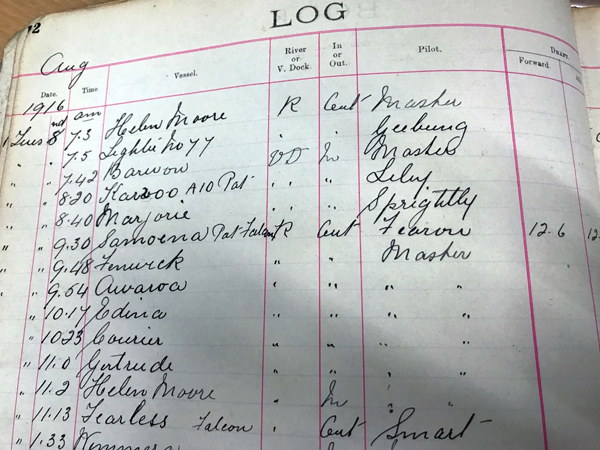 12
LOG
Aug
Date. Time Vessel. River or V. Dock. In or Out. Pilot. DRAFT.
Forward
1916 am
1 Tues 8 7.3 Helen Moore R Out Master
" " 7.5 Lighter No 77 " " Geebung
" " 7.42 Barwon VD In Master
" " 8.20 Karoo A10 Pat " " Lily
" " 8.40 Marjorie " " Sprightly
" " 9.30 Samoena Pat Falcon R Out Fearon 12.6 12
" " 9.48 Fenwick " " Master
" " 9.54 Awaroa " " " "
" " 10.17 Edina " " " "
" " 10.23 Courier " " " "
" " 11.0 Gertrude " " " "
" " 11.2 Helen Moore " In " "
" " 11.13 Fearless Falcon " Out Smart
" 1.33 Wimmera